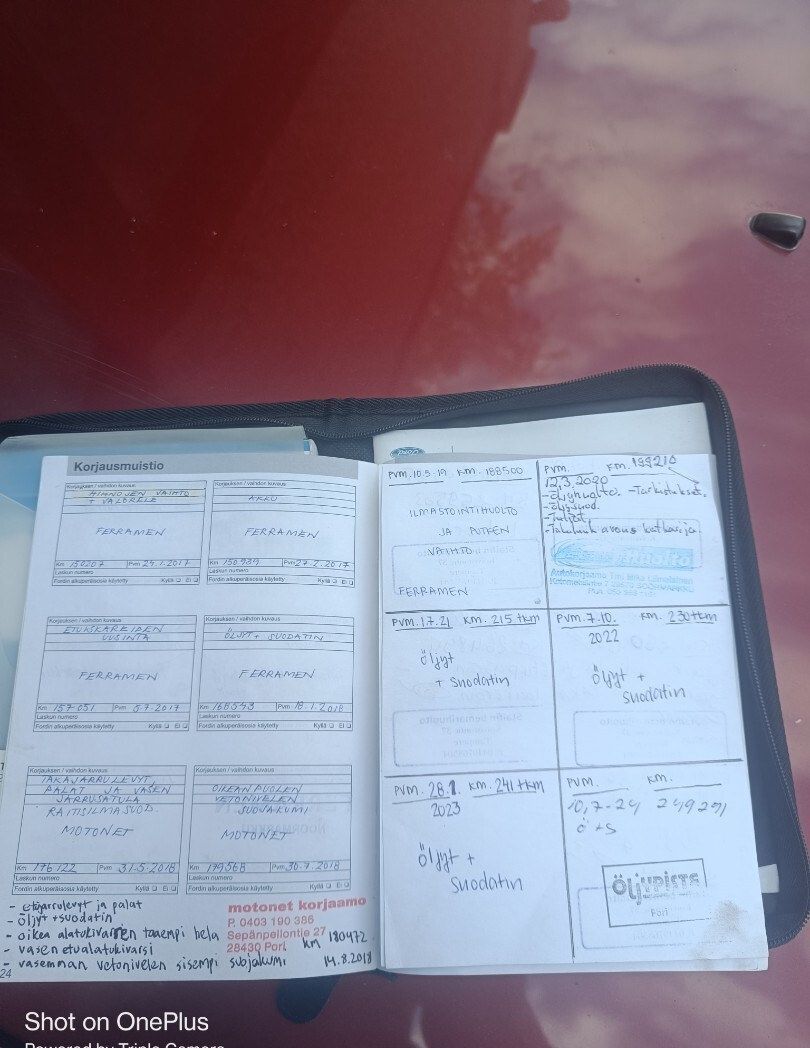 Ford
Korjausmuistio
Korjauksen / vaihdon kuvaus
HIHNOJEN VAIHTO
+ VALDRELE
FERRAMEN
Km 150207 Pvm 24.1.2017
Laskun numero
Fordin alkuperäisosia käytetty Kyllä Ei
Korjauksen / vaihdon kuvaus
AKKU
FERRAMEN
Km 150939 Pvm 27.2.2017
Laskun numero
Fordin alkuperäisosia käytetty Kyllä Ei
Korjauksen / vaihdon kuvaus
ETUISKAREIDEN
UUSINTA
FERRAMEN
Km 157051 Pvm 5.7.2017
Laskun numero
Fordin alkuperäisosia käytetty Kyllä Ei
Korjauksen / vaihdon kuvaus
ÖLJYT + SUODATIN
FERRAMEN
Km 168543 Pvm 18.1.2018
Laskun numero
Fordin alkuperäisosia käytetty Kyllä Ei
Korjauksen / vaihdon kuvaus
TAKAJARRULEVYT,
PALAT JA VASEN
JARRUSATULA
RAITISILMASUOD.
MOTONET
Km 176122 Pvm 31.5.2018
Laskun numero
Fordin alkuperäisosia käytetty Kyllä Ei
Korjauksen / vaihdon kuvaus
OIKEAN PUOLEN
VETONIVELEN
SUOJAKUMI
MOTONET
Km 179568 Pvm 30.7.2018
Laskun numero
Fordin alkuperäisosia käytetty Kyllä Ei
- etujarrulevyt ja palat
- öljyt + suodatin
- oikea alatukivarren taaempi hela
- vasen etualatukivarsi
- vasemman vetonivelen sisempi suojakumi
motonet korjaamo
P. 0403 190 386
Sepänpellontie 27
28430 Pori
km 180472
14.8.2018
24
PVM. 10.5.19 KM. 188500
ILMASTOINTIHUOLTO
JA PUTKEN
VAIHTO
FERRAMEN
PVM. KM. 199210
12.3.2020
- Öljynvaihto. - Tarkistukset.
- Öljysuod.
Autokorjaamo Tmi
PVM. 1.7.21 KM. 215 tkm
Öljyt
+ suodatin
PVM. 7.10. KM. 230 tkm
2022
Öljyt +
suodatin
PVM. 28.1. KM. 241 tkm
2023
Öljyt +
Suodatin
PVM. KM.
10,7-24 249291
Ö+S
ÖLJYPISTE
Pori
Shot on OnePlus
Powered by Triple Camera